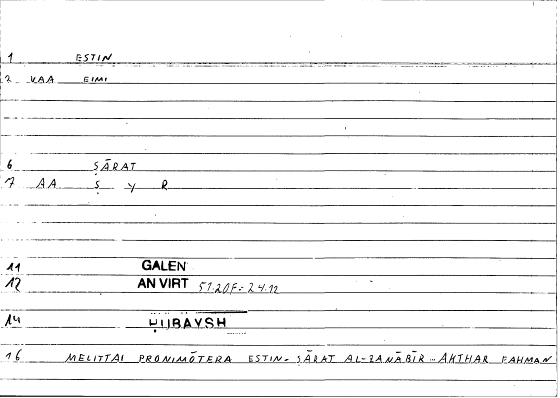 1 ESTIN
2 KAA EIMI
6 ṢĀRAT
7 AA Ṣ Y R
11 GALEN
12 AN VIRT 51.20F.-24.12
14 ḤUBAYSH
16 MELITTAI PRONIMŌTERA ESTIN - ṢĀRAT AL-ZANĀBĪR - AKTHAR FAHMAN